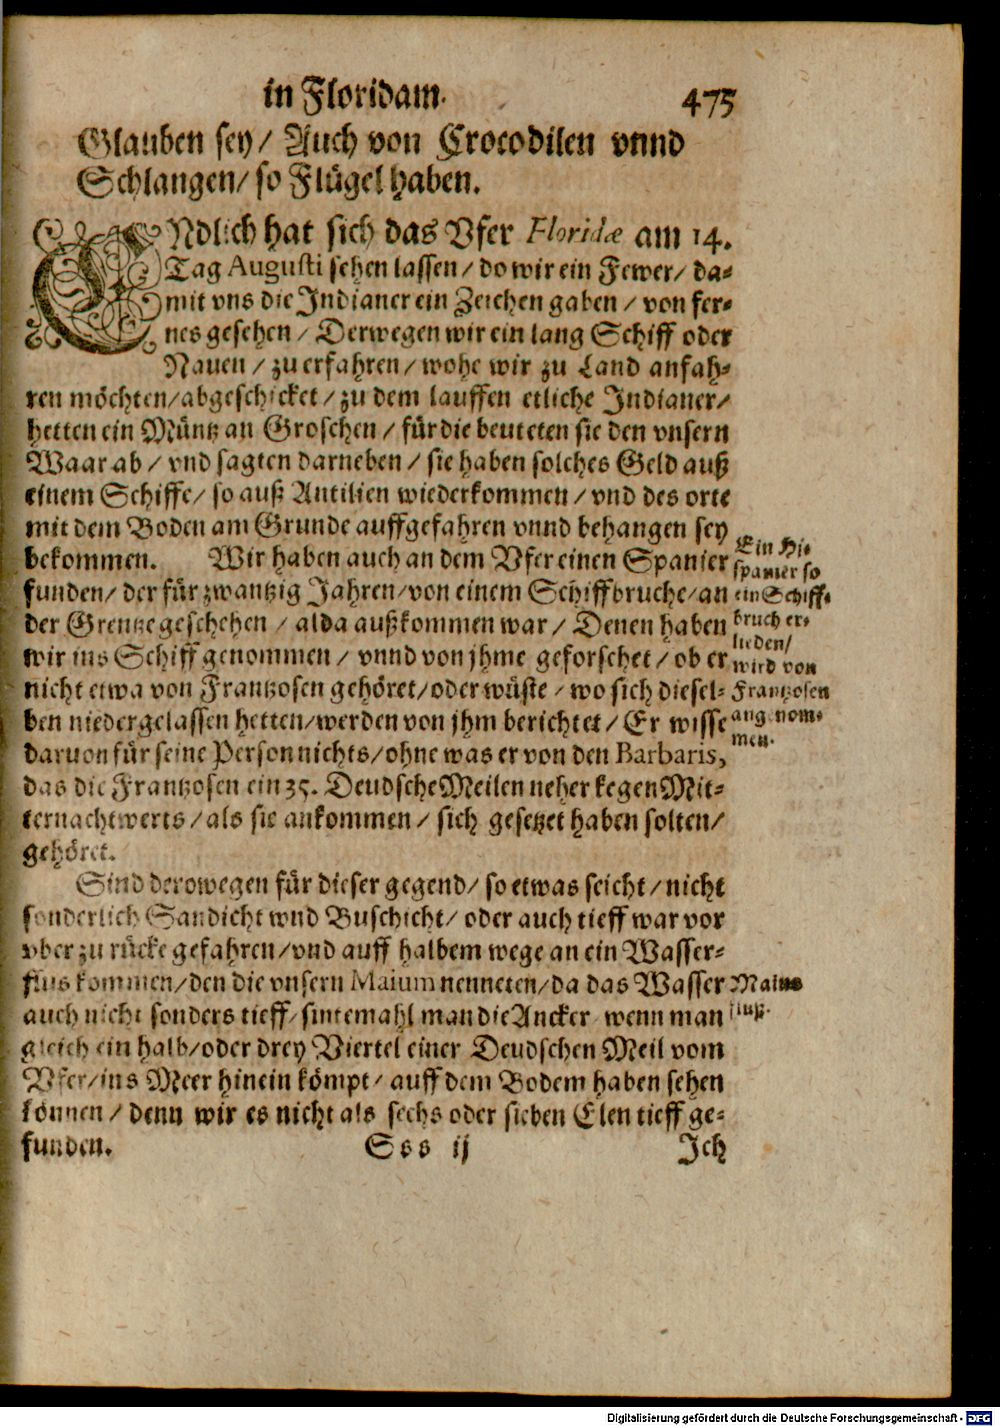 in Floridam.
475
Glauben sey/ Auch von Crocodilen vnnd
Schlangen/ so Flügel haben.
ENdlich hat sich das Vfer Floridæ am 14.
Tag Augusti sehen lassen/ do wir ein Fewer/ da-
mit vns die Indianer ein Zeichen gaben/ von fer-
nes gesehen/ Derwegen wir ein lang Schiff oder
Nauen/ zu erfahren/ wohe wir zu Land anfah-
ren möchten/ abgeschicket/ zu dem lauffen etliche Indianer/
hetten ein Müntz an Groschen/ für die beuteten sie den vnsern
Waar ab/ vnd sagten darneben/ sie haben solches Geld auß
einem Schiffe/ so auß Antilien wiederkommen/ vnd des orte
mit dem Boden am Grunde auffgefahren vnnd behangen sey
bekommen. Wir haben auch an dem Vfer einen Spanier
funden/ der für zwantzig Jahren/ von einem Schiffbruche/ an
der Grentze geschehen/ alda außkommen war/ Denen haben
wir ins Schiff genommen/ vnnd von jhme geforschet/ ob er
nicht etwa von Frantzosen gehöret/ oder wüste/ wo sich diesel-
ben niedergelassen hetten/ werden von jhm berichtet/ Er wisse
daruon für seine Person nichts/ ohne was er von den Barbaris,
das die Frantzosen ein 35. Deudsche Meilen neher kegen Mit-
ternachtwerts/ als sie ankommen/ sich gesetzet haben solten/
gehöret.
Ein Hi-
spanier so
ein Schiff-
bruch er-
lieden/
wird von
Frantzosen
angenom-
men.
Sind derowegen für dieser gegend/ so etwas seicht/ nicht
sonderlich Sandicht vnd Buschicht/ oder auch tieff war vor
vber zu rücke gefahren/ vnd auff halbem wege an ein Wasser-
flus kommen/ den die vnsern Maium nenneten/ da das Wasser
auch nicht sonders tieff/ sintemahl man die Ancker wenn man
gleich ein halb/ oder drey Viertel einer Deudschen Meil vom
Vfer/ ins Meer hinein kömpt/ auff dem Bodem haben sehen
können/ denn wir es nicht als sechs oder sieben Elen tieff ge-
funden.
Maius
fluß.
Sss ij
Ich
Digitalisierung gefördert durch die Deutsche Forschungsgemeinschaft - DFG